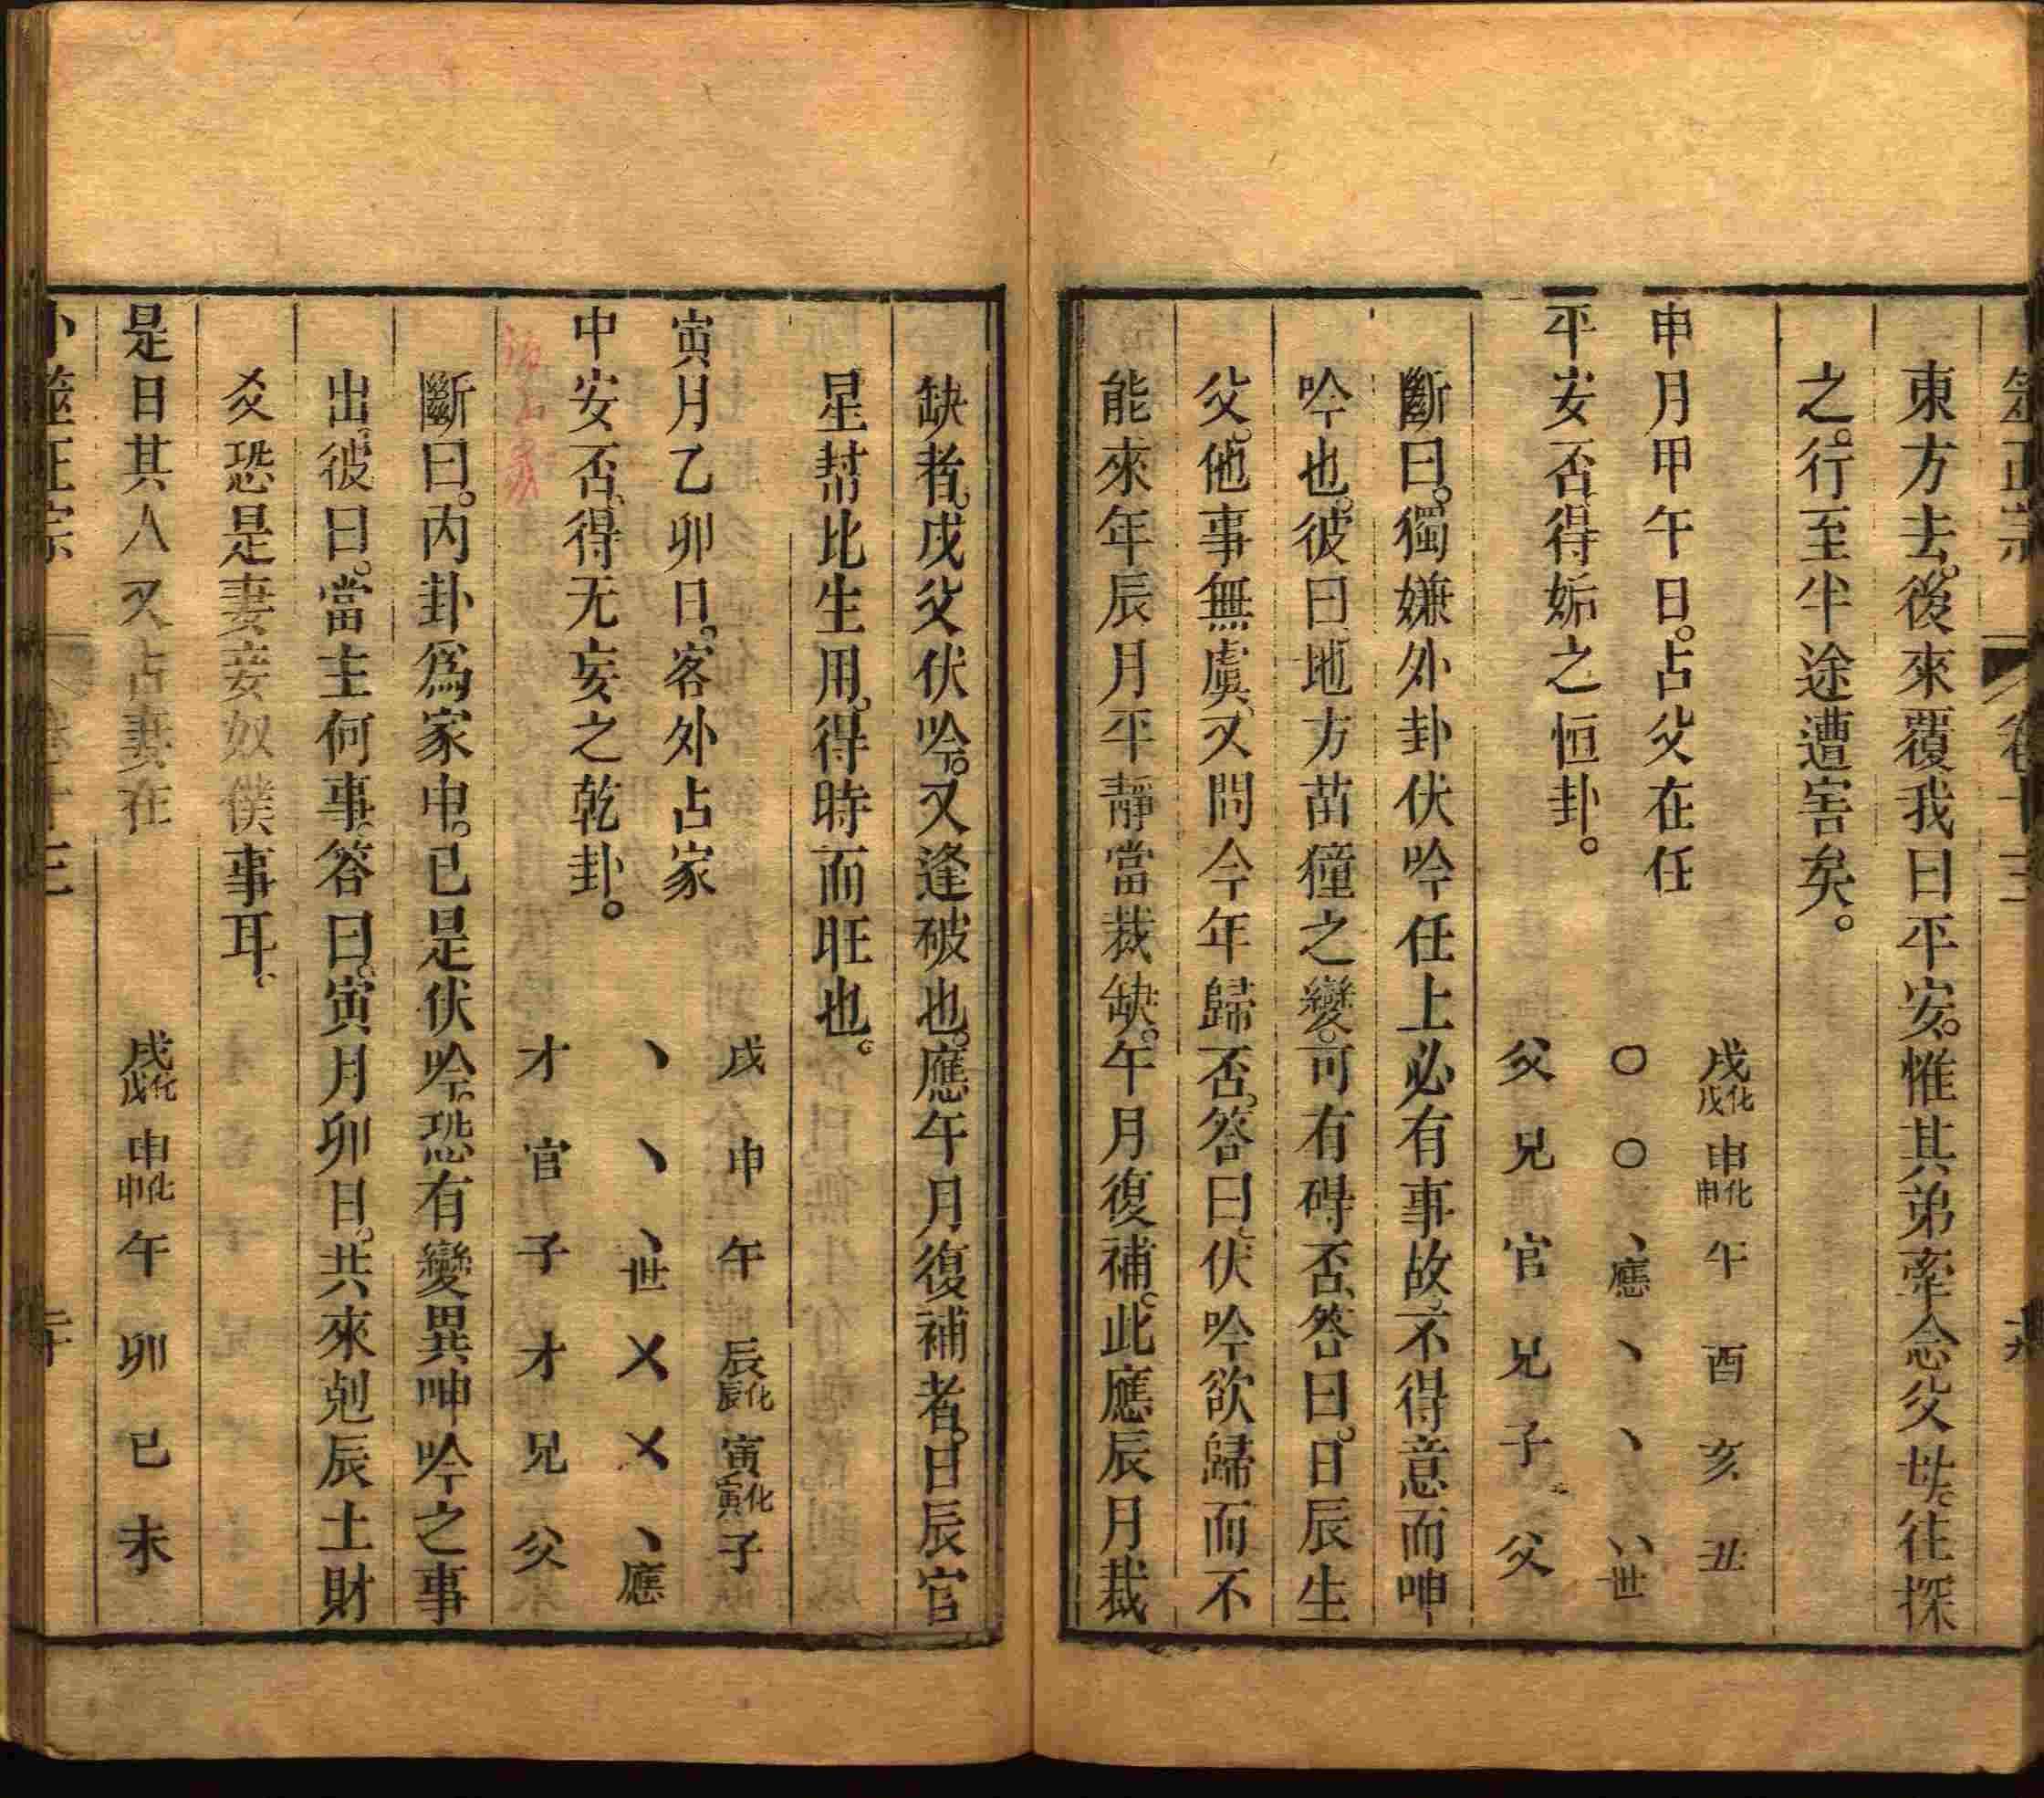 東方去。後來覆我曰平安。惟其弟牽念父母。往探
之。行至半途遭害矣。
申月甲午日。占父在任
平安否、得姤之恒卦。
戌化戌 申化申 午 酉 亥 丑
〇 〇 、應 、 、 、、世
父 兄 官 兄 子 父
斷曰。獨嫌外卦伏吟任上必有事故。不得意而呻
吟也。彼曰地方苗獞之變。可有碍否、答曰。日辰生
父。他事無虞、又問今年歸否。答曰、伏吟欲歸而不
能來年辰月平靜當裁缺。午月復補。此應辰月裁
缺者。戌父伏吟。又逢破也。應午月復補者。日辰官
星幇比生用。得時而旺也。
寅月乙卯日。客外占家
中安否、得无妄之乾卦。
戌 申 午 辰化辰 寅化寅 子
、 、 、世 乂 乂 、應
才 官 子 才 兄 父
斷曰。內卦爲家中。已是伏吟。恐有變異呻吟之事
出。彼曰。當主何事。答曰。寅月卯日。共來剋辰土財
爻恐是妻妾奴僕事耳、
是日其人又占妻在
戌化戌 申化申 午 卯 巳 未